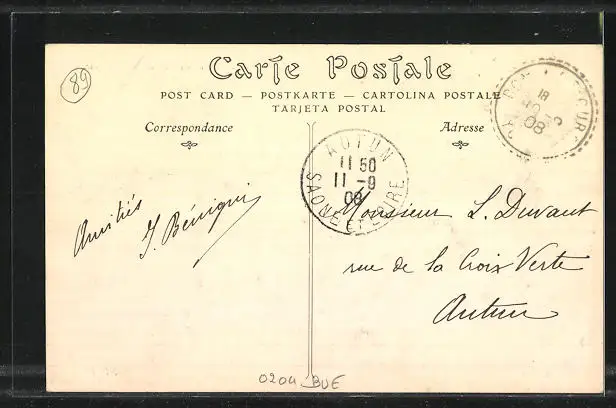 89
Carte Postale
POST CARD — POSTKARTE — CARTOLINA POSTALE
TARJETA POSTAL
Correspondance
Adresse
AUTUN
11 50
11 - 9
08
SAONE ET LOIRE
18
08
Amitiés
J. Bénigni
Monsieur L. Duvaut
rue de la Croix Verte
Autun
0204 BUE